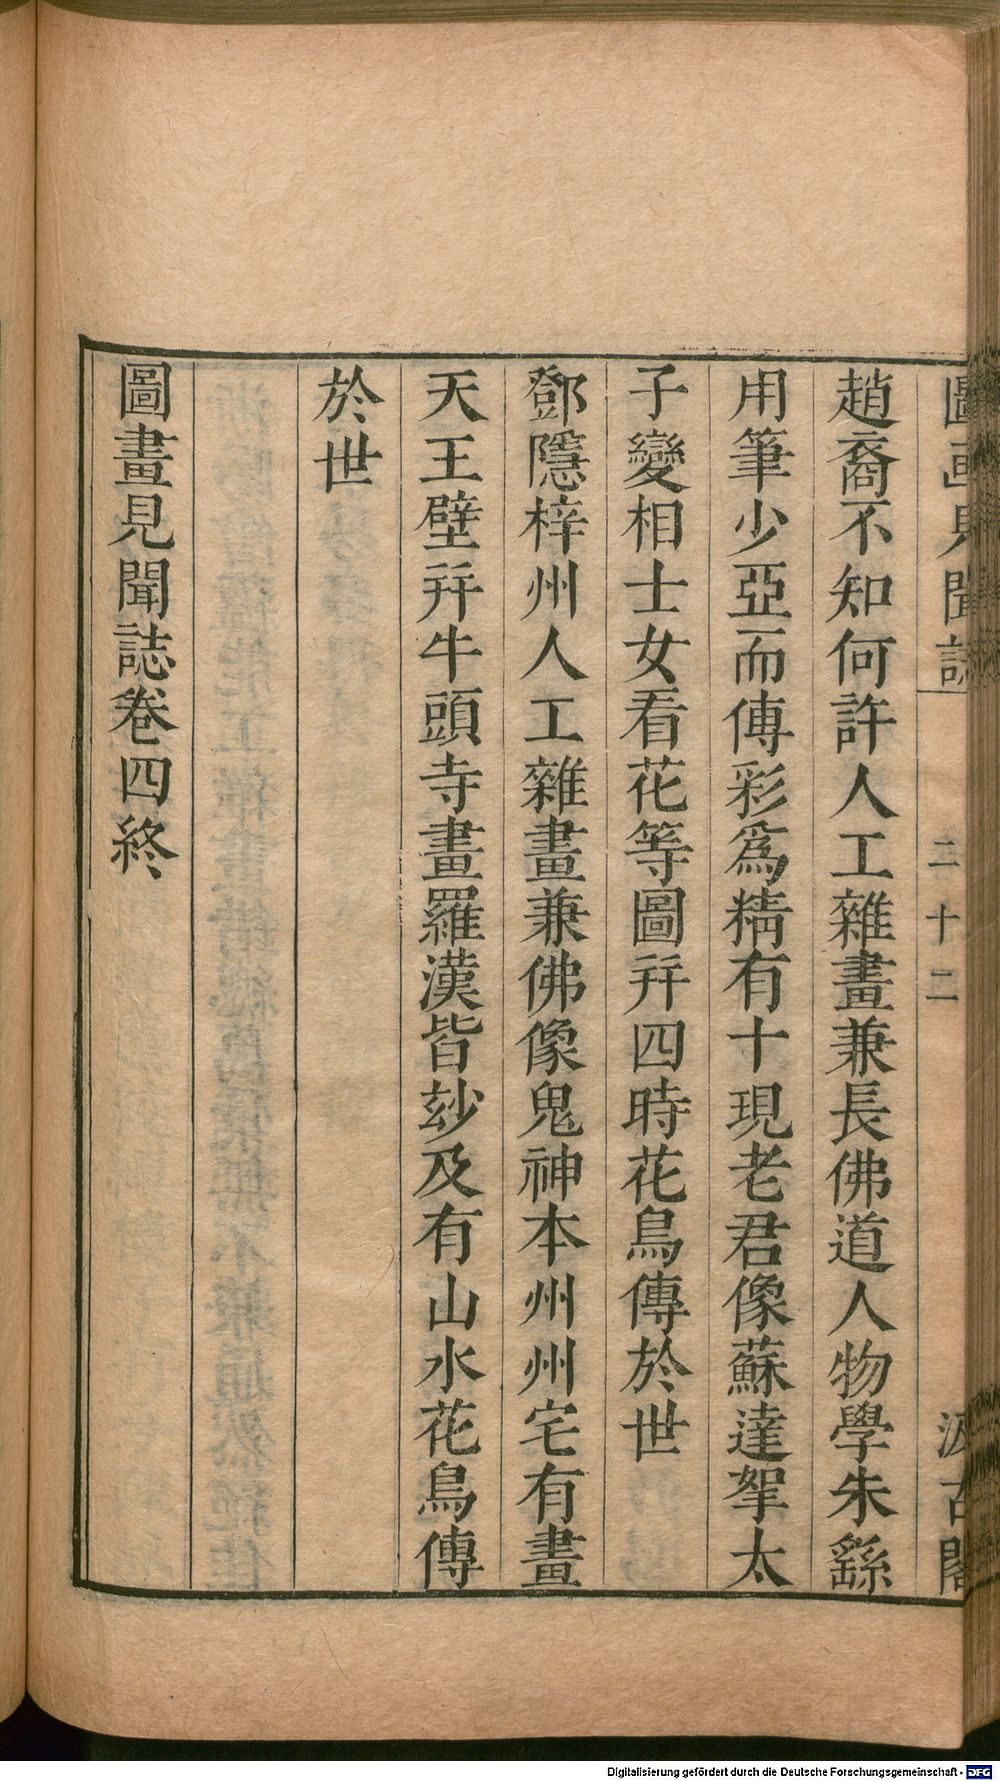 圖画見聞誌 二十二 汲古閣
趙裔不知何許人工雜畫兼長佛道人物學朱繇
用筆少亞而傳彩爲精有十現老君像蘇達拏太
子變相士女看花等圖并四時花鳥傳於世
鄧隱梓州人工雜畫兼佛像鬼神本州州宅有畫
天王壁并牛頭寺畫羅漢皆玅及有山水花鳥傳
於世
圖畫見聞誌卷四終
Digitalisierung gefördert durch die Deutsche Forschungsgemeinschaft - DFG